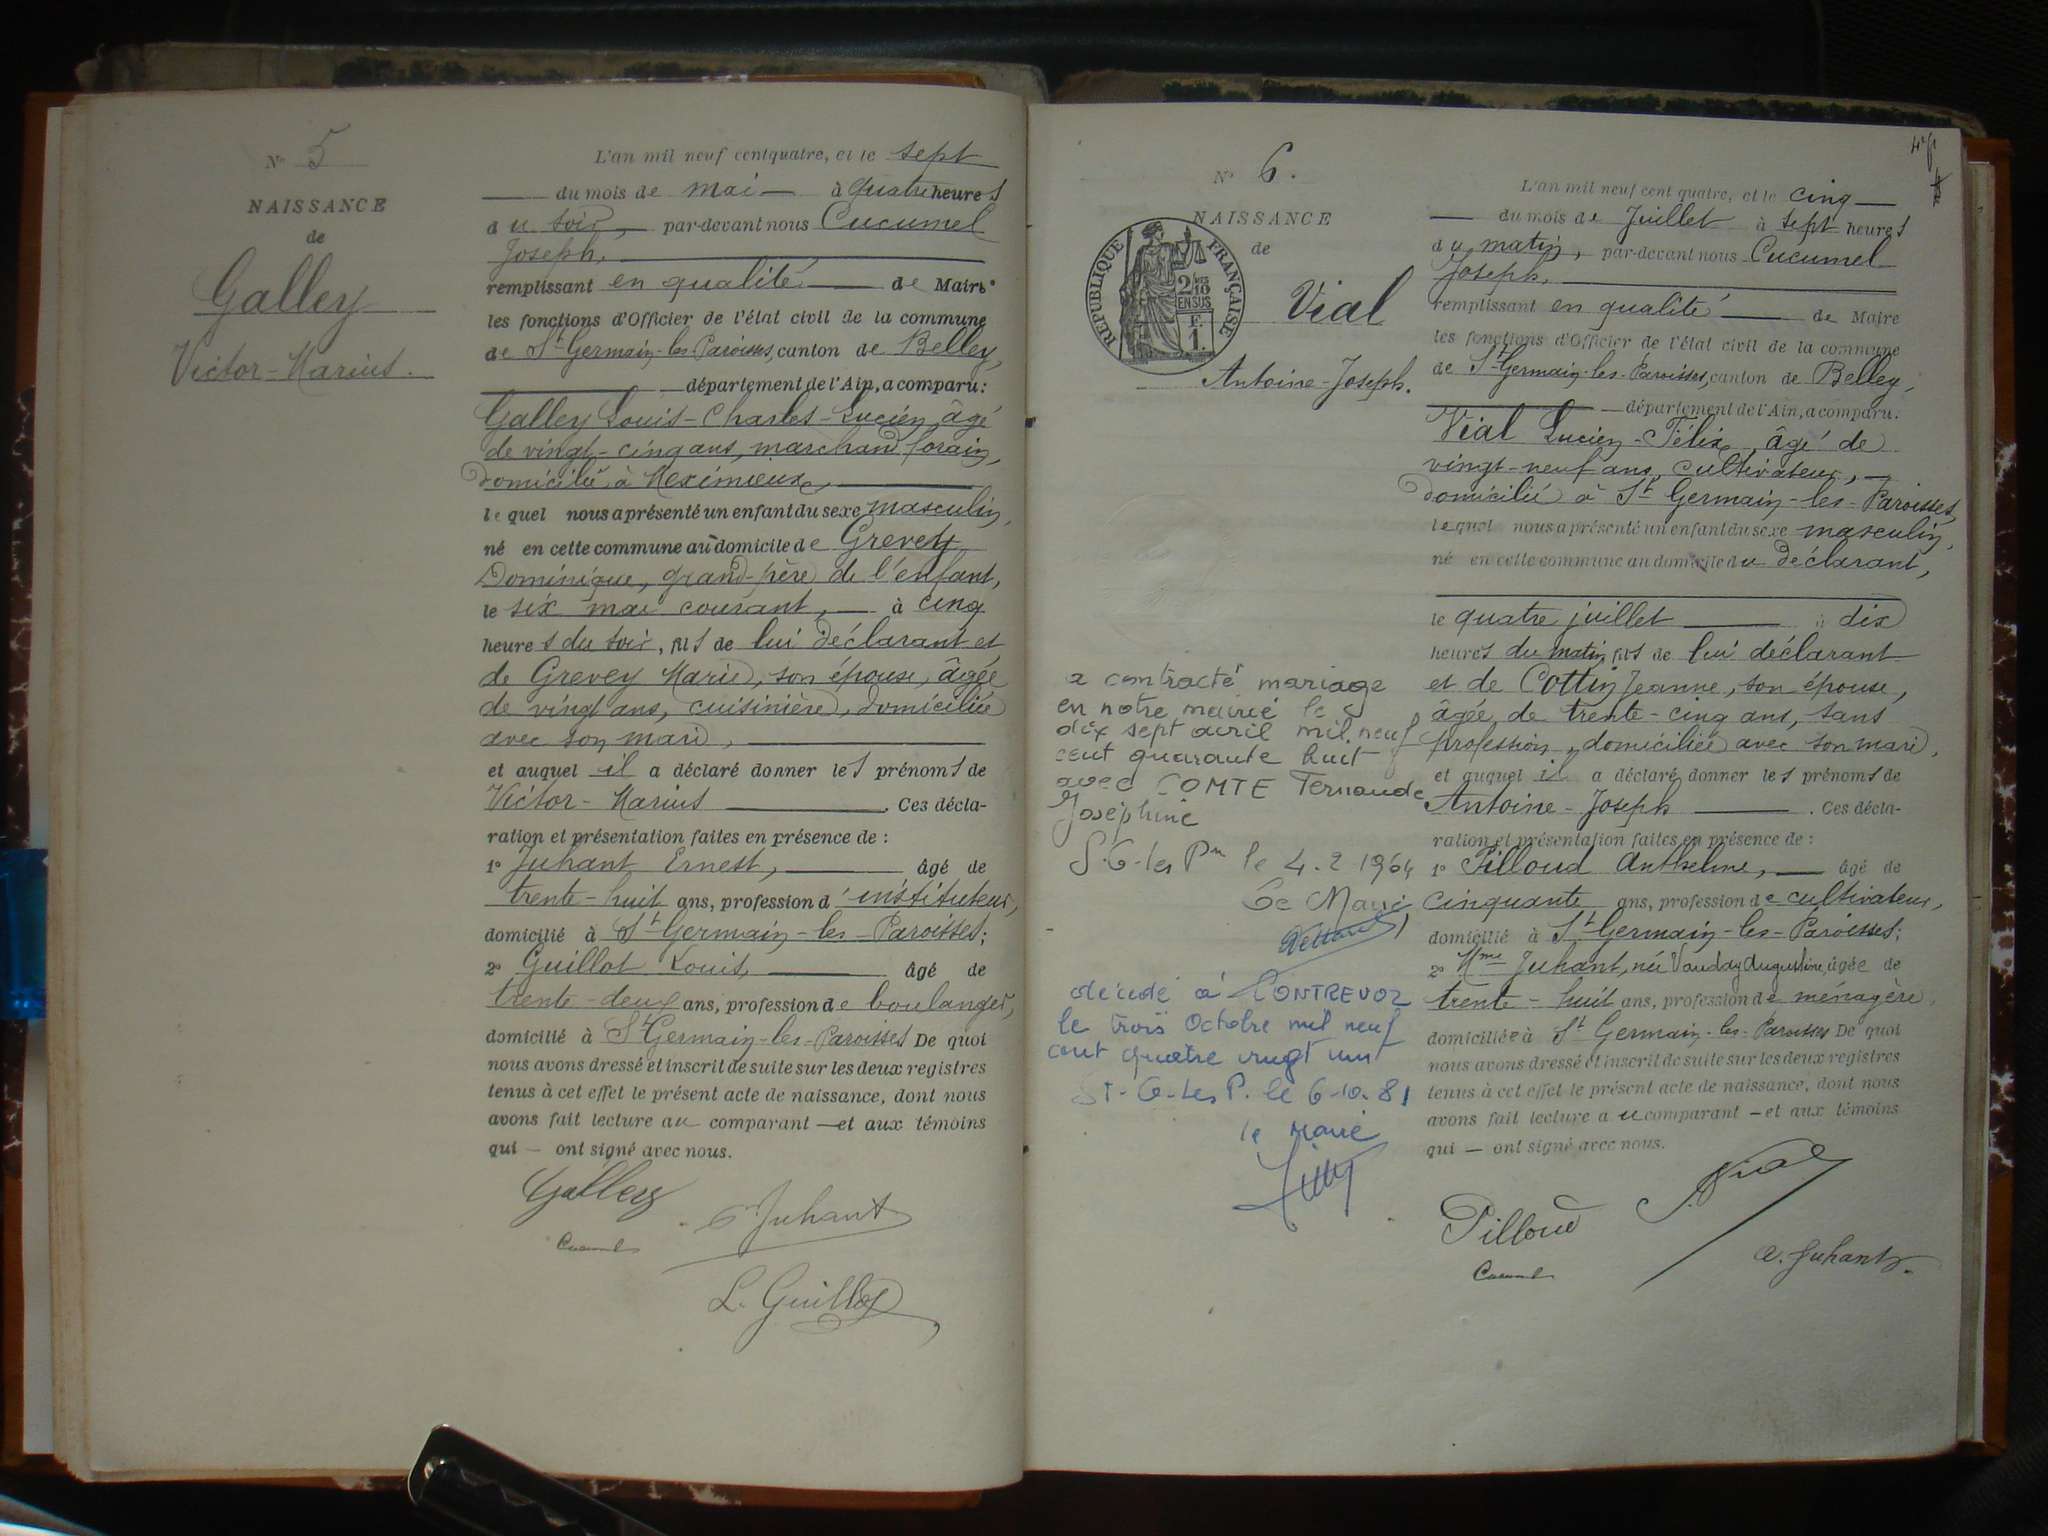 N° 5
NAISSANCE
de
Galley
Victor-Marius.
L'an mil neuf cent quatre, et le sept
du mois de mai à quatre heures
du soir, par-devant nous Cucumel
Joseph,
remplissant en qualité de Maire
les fonctions d'Officier de l'état civil de la commune
de St Germain-les-Paroisses, canton de Belley,
département de l'Ain, a comparu:
Galley Louis-Charles-Lucien, âgé
de vingt-cinq ans, marchand forain,
domicilié à Meximieux,
lequel nous a présenté un enfant du sexe masculin,
né en cette commune au domicile de Grevey
Dominique, grand-père de l'enfant,
le six mai courant, à cinq
heures du soir, fils de lui déclarant et
de Grevey Marie, son épouse, âgée
de vingt ans, cuisinière, domiciliée
avec son mari,
et auquel il a déclaré donner les prénoms de
Victor-Marius. Ces décla-
ration et présentation faites en présence de :
1° Juhant Ernest, âgé de
trente-huit ans, profession d'instituteur,
domicilié à St Germain-les-Paroisses;
2° Guillot Louis, âgé de
trente-deux ans, profession de boulanger,
domicilié à St Germain-les-Paroisses De quoi
nous avons dressé et inscrit de suite sur les deux registres
tenus à cet effet le présent acte de naissance, dont nous
avons fait lecture au comparant — et aux témoins
qui — ont signé avec nous.
Galley
E. Juhant
Cucumel
L. Guillot
N° 6.
NAISSANCE
de
RÉPUBLIQUE FRANÇAISE
2/10
EN SUS
F.
1.
Vial
Antoine-Joseph.
a contracté mariage
en notre mairie le
dix sept avril mil neuf
cent quarante huit
avec COMTE Fernande
Joséphine
S.G-les Pses le 4.2 1964
Le Maire
décédé à CONTREVOZ
le trois Octobre mil neuf
cent quatre vingt un
ST-G-Les P. le 6-10-81
le Maire
L'an mil neuf cent quatre, et le cinq
du mois de Juillet à sept heures
du matin, par-devant nous Cucumel
Joseph,
remplissant en qualité de Maire
les fonctions d'Officier de l'état civil de la commune
de St Germain-les-Paroisses, canton de Belley,
département de l'Ain, a comparu:
Vial Lucien-Félix, âgé de
vingt-neuf ans, cultivateur,
domicilié à St Germain-les-Paroisses,
lequel nous a présenté un enfant du sexe masculin,
né en cette commune au domicile du déclarant,
le quatre juillet à dix
heures du matin, fils de lui déclarant
et de Cottin Jeanne, son épouse,
âgée de trente-cinq ans, sans
profession, domiciliée avec son mari,
et auquel il a déclaré donner les prénoms de
Antoine-Joseph. Ces décla-
ration et présentation faites en présence de :
1° Pilloud Anthelme, âgé de
cinquante ans, profession de cultivateur,
domicilié à St Germain-les-Paroisses;
2° Mme Juhant, née Vauday Augustine, âgée de
trente-huit ans, profession de ménagère,
domiciliée à St Germain-les-Paroisses De quoi
nous avons dressé et inscrit de suite sur les deux registres
tenus à cet effet le présent acte de naissance, dont nous
avons fait lecture au comparant — et aux témoins
qui — ont signé avec nous.
Vial
Pilloud
Cucumel
A. Juhant